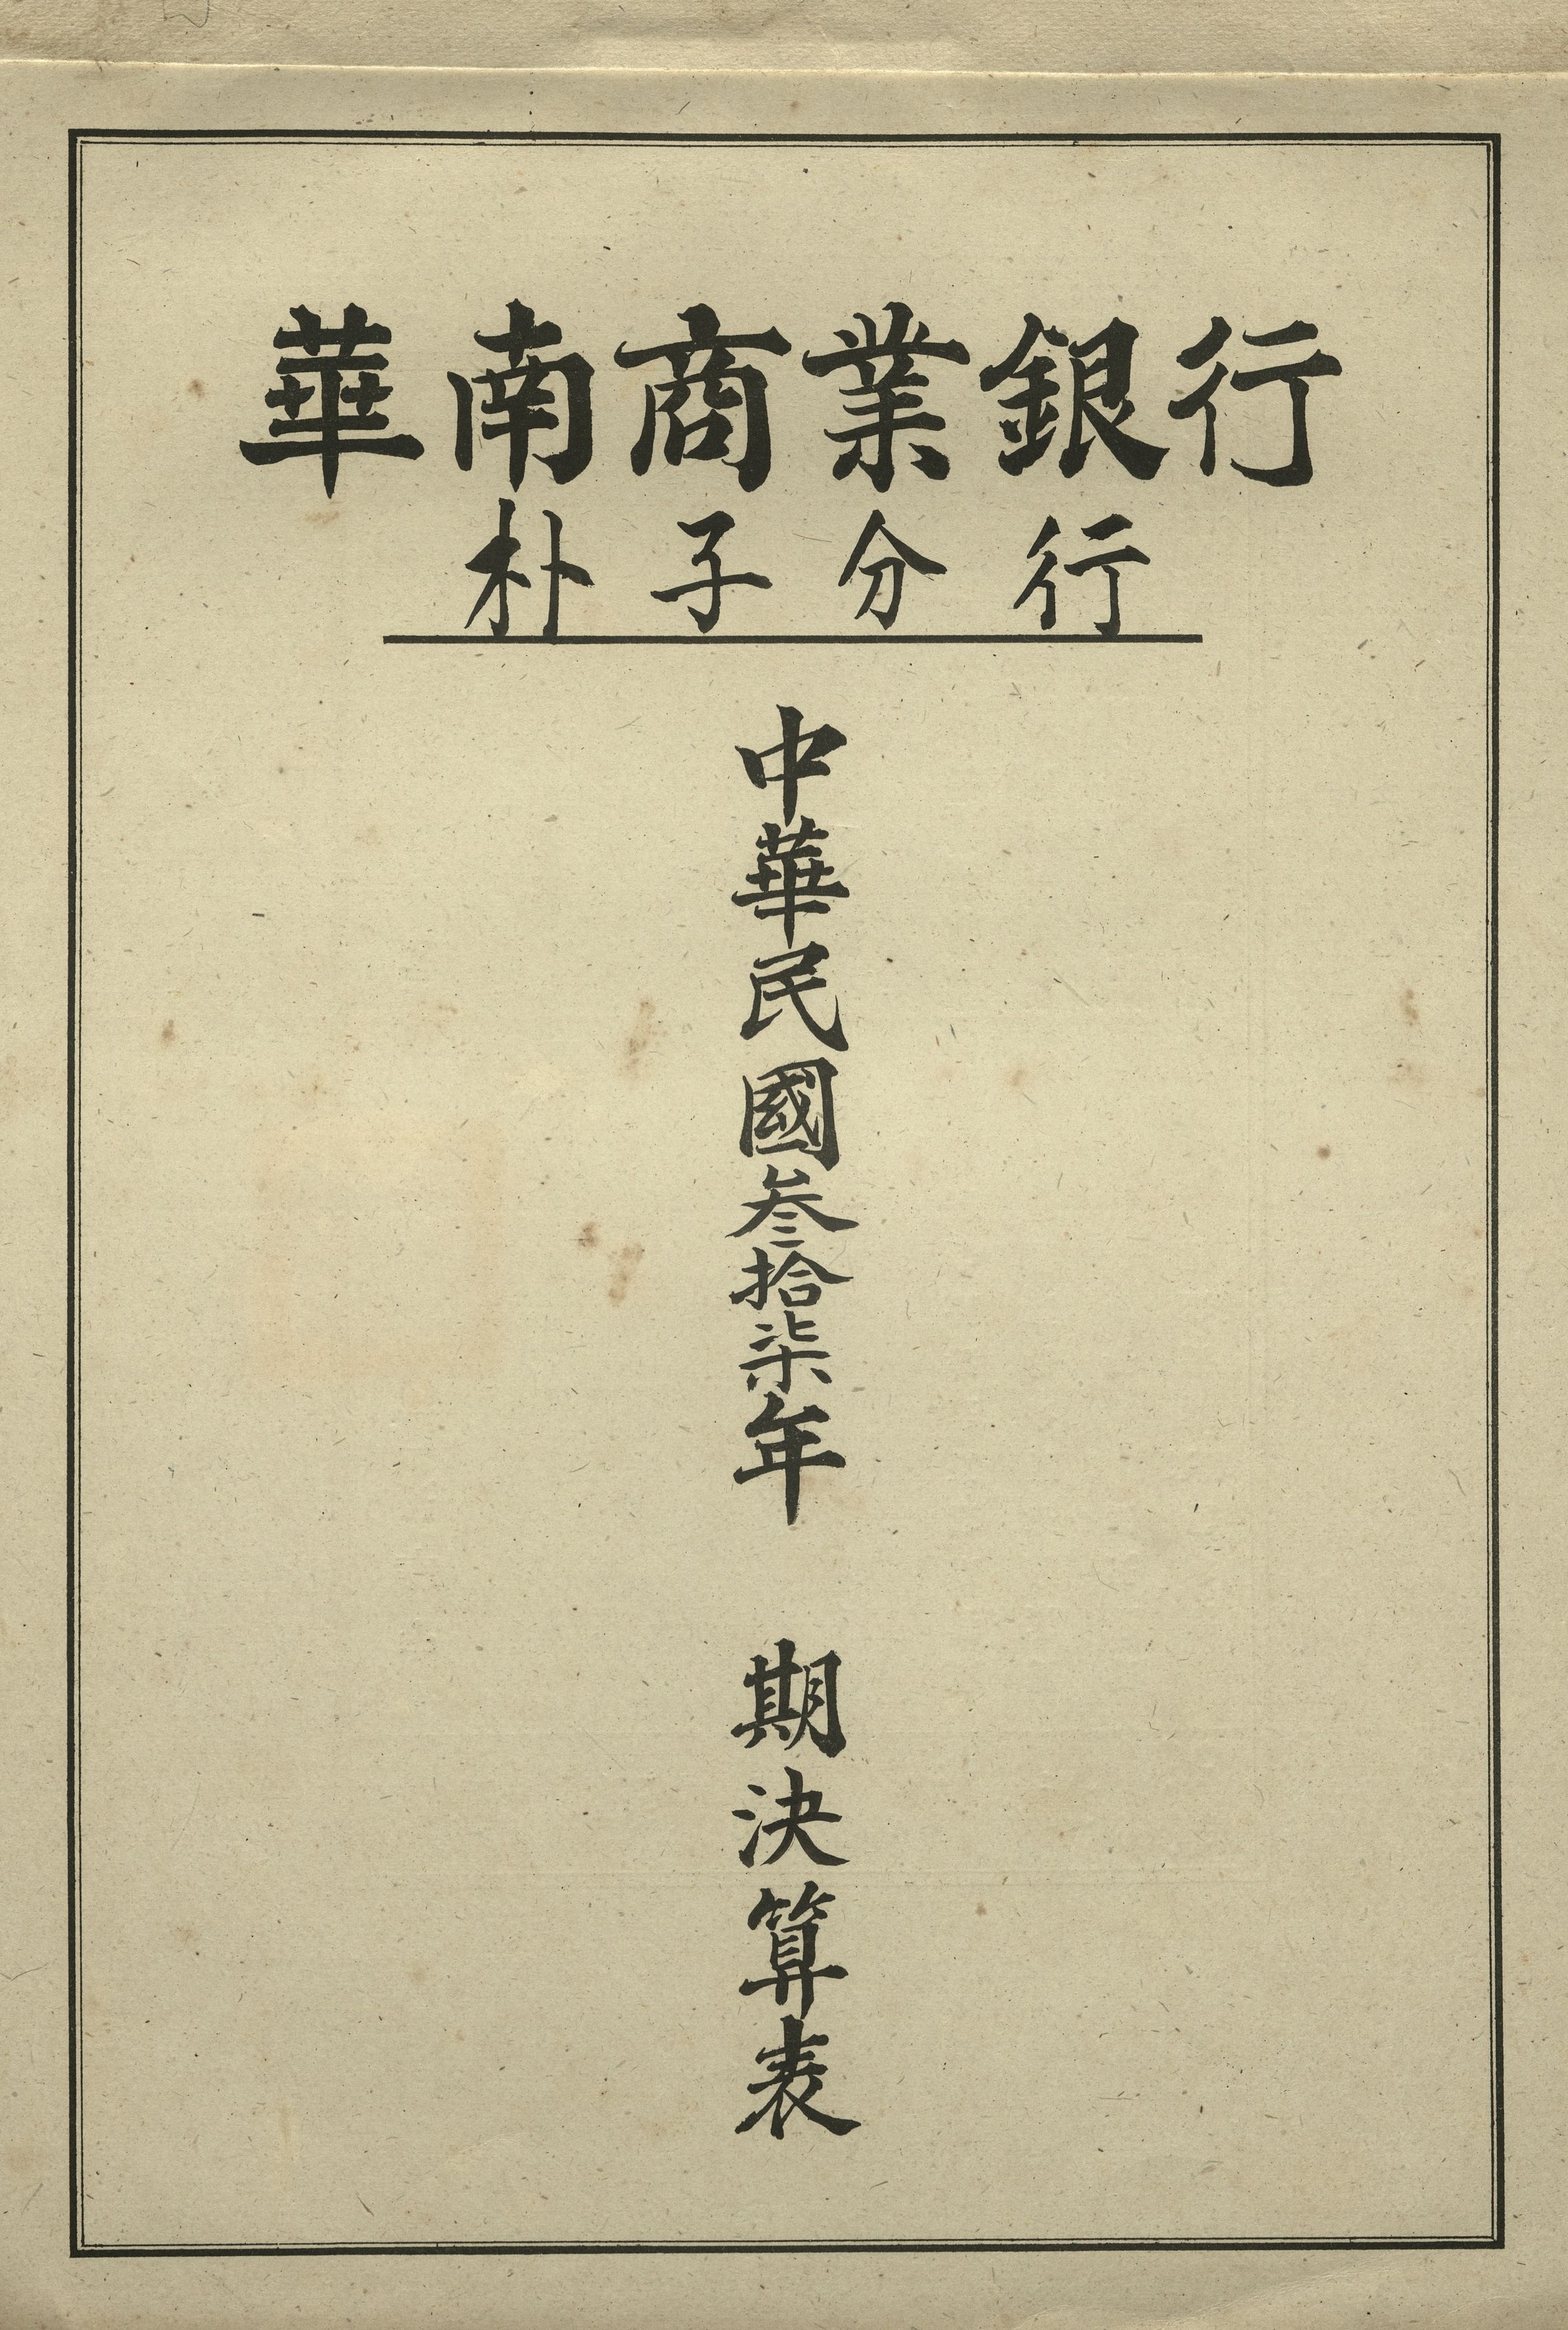 華南商業銀行
朴子分行
中華民國叁拾柒年 期決算表